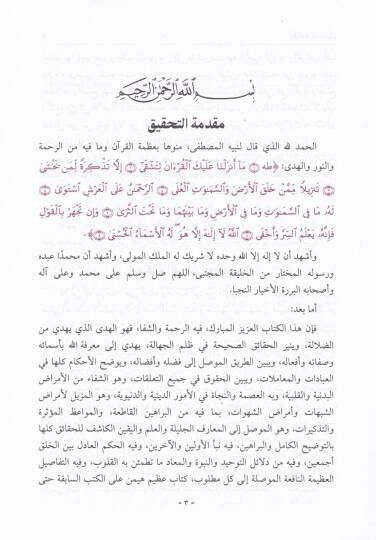 بِسْمِ ٱللَّهِ ٱلرَّحْمَٰنِ ٱلرَّحِيمِ
مقدمة التحقيق
الحمد لله الذي قال لنبيه المصطفى، منوها بعظمة القرآن وما فيه من الرحمة
والنور والهدى: ﴿طه ۝ مَآ أَنزَلْنَا عَلَيْكَ ٱلْقُرْءَانَ لِتَشْقَىٰٓ ۝ إِلَّا تَذْكِرَةً لِّمَن يَخْشَىٰ
۝ تَنزِيلًا مِّمَّنْ خَلَقَ ٱلْأَرْضَ وَٱلسَّمَٰوَٰتِ ٱلْعُلَى ۝ ٱلرَّحْمَٰنُ عَلَى ٱلْعَرْشِ ٱسْتَوَىٰ ۝
لَهُۥ مَا فِى ٱلسَّمَٰوَٰتِ وَمَا فِى ٱلْأَرْضِ وَمَا بَيْنَهُمَا وَمَا تَحْتَ ٱلثَّرَىٰ ۝ وَإِن تَجْهَرْ بِٱلْقَوْلِ
فَإِنَّهُۥ يَعْلَمُ ٱلسِّرَّ وَأَخْفَى ۝ ٱللَّهُ لَآ إِلَٰهَ إِلَّا هُوَ ۖ لَهُ ٱلْأَسْمَآءُ ٱلْحُسْنَىٰ ۝﴾.
وأشهد أن لا إله إلا الله وحده لا شريك له الملك المولى، وأشهد أن محمدًا عبده
ورسوله المختار من الخليقة المجتبى، اللهم صل وسلم على محمد وعلى آله
وأصحابه البررة الأخيار النجبا.
أما بعد:
فإن هذا الكتاب العزيز المبارك، فيه الرحمة والشفا، فهو الهدى الذي يهدي من
الضلالة، وينير الحقائق الصحيحة في ظلم الجهالة، يهدي إلى معرفة الله بأسمائه
وصفاته وأفعاله، ويبين الطريق الموصل إلى فضله وأفضاله، ويوضح الأحكام كلها في
العبادات والمعاملات، ويبين الحقوق في جميع التعلقات، وهو الشفاء من الأمراض
البدنية والقلبية، وبه العصمة والنجاة في الأمور الدينية والدنيوية، وهو المزيل لأمراض
الشبهات وأمراض الشهوات، بما فيه من البراهين القاطعة، والمواعظ المؤثرة
والتذكيرات، وهو الموصل إلى المعارف الجليلة والعلم واليقين الكاشف للحقائق كلها
بالتوضيح الكامل والبراهين، فيه نبأ الأولين والآخرين، وفيه الحكم العادل بين الخلق
أجمعين، وفيه من دلائل التوحيد والنبوة والمعاد ما تطمئن به القلوب، وفيه التفاصيل
العظيمة النافعة الموصلة إلى كل مطلوب، كتاب عظيم هيمن على الكتب السابقة حتى
- ٣ -